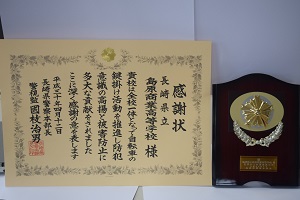 感謝状
長崎県立
島原商業高等学校 様
貴校は全校一体となって自転車の
鍵掛け活動を推進し防犯
意識の高揚と被害防止に
多大な貢献をされました
ここに深く感謝の意を表します
平成三十年四月十二日
長崎県警察本部長
警視監 國枝治男